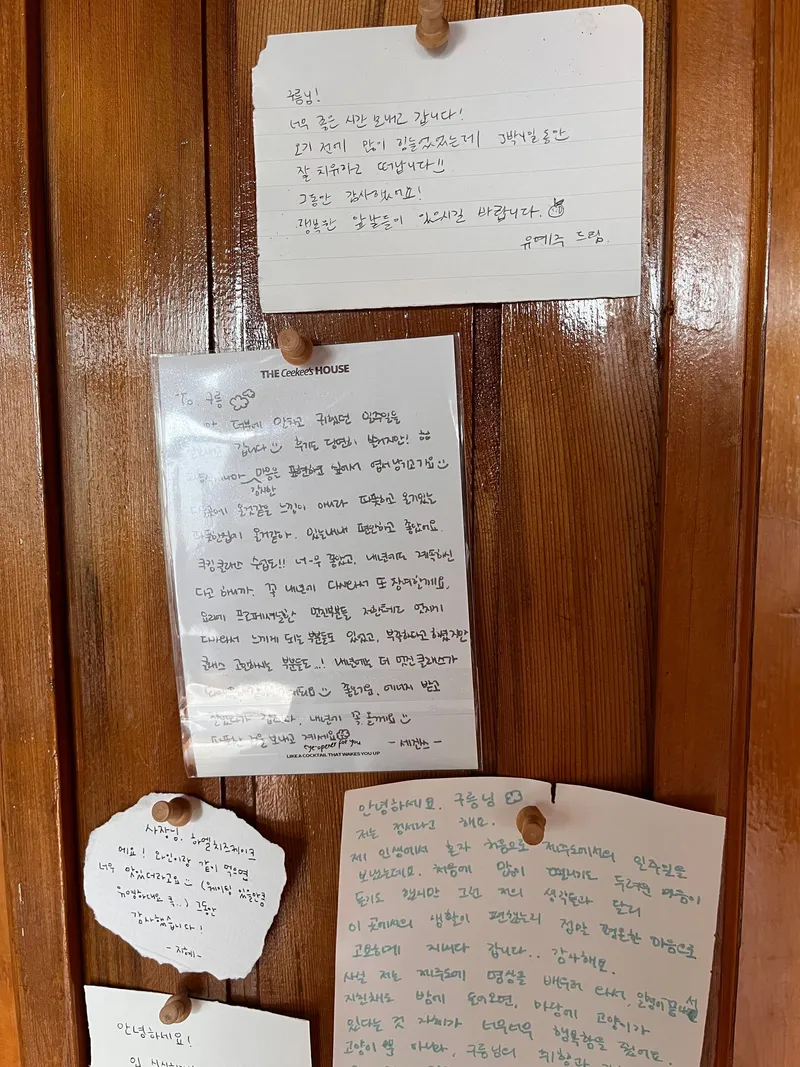 구름님!
너무 좋은 시간 보내고 갑니다!
오기 전에 많이 힘들었었는데 3박4일동안
잘 치유하고 떠납니다
그동안 감사했어요!
행복한 앞날들이 있으시길 바랍니다.
유예주 드림.
THE Ceekee's HOUSE
To 구름
덕분에 안락하고 귀했던 일주일을
갑니다 후기도 당연히 쓸거지만!
마음은 표현하고 싶어서 엽서 남기고가요
감사한
올것같은 느낌이 아니라 따뜻하고 온기있는
올거같아. 있는내내 편안하고 좋았어요.
쿠킹클래스 수업도!! 너-무 좋았고, 내년에도 계속하신
다고 하니까. 꼭 내년에 다시와서 또 참여할게요.
요리에 프로페셔널한 멋진부분들 저한테도 언젠가
다가와서 느끼게 되는 부분들도 있었고, 부족하다고 하셨지만
클래스 고민하시는 부분들도...! 내년에는 더 멋진 클래스가
좋은기운, 에너지 받고
갑니다, 내년에 꼭 올게요
겨울 보내고 계세요
eye opener for you
- 세진쓰 -
LIKE A COCKTAIL THAT WAKES YOU UP
사장님, 하엘치즈케이크
예요! 와인이랑 같이 먹으면
너무 맛있더라고요 (웨이팅 있을만큼
유명하대요 ㅎ..) 그동안
감사했습니다!
- 지혜 -
안녕하세요. 구름님
저는 정서라고 해요.
제 인생에서 혼자 처음으로 제주도에서의 일주일을
보냈는데요. 처음에 많이 떨리기도 두려운 마음이
들기도 했지만 그런 저의 생각들과 달리
이 곳에서의 생활이 편했는지 정말 평온한 마음으로
고요하게 지내다 갑니다.. 감사해요.
사실 저는 제주도에 명상을 배우러 와서, 일정이 끝나면
지친채로 방에 들어오면, 마당에 고양이가
있다는 것 자체가 너무너무 행복함을 줬어요.
고양이 뿐 아니라, 구름님의 취향과
안녕하세요!